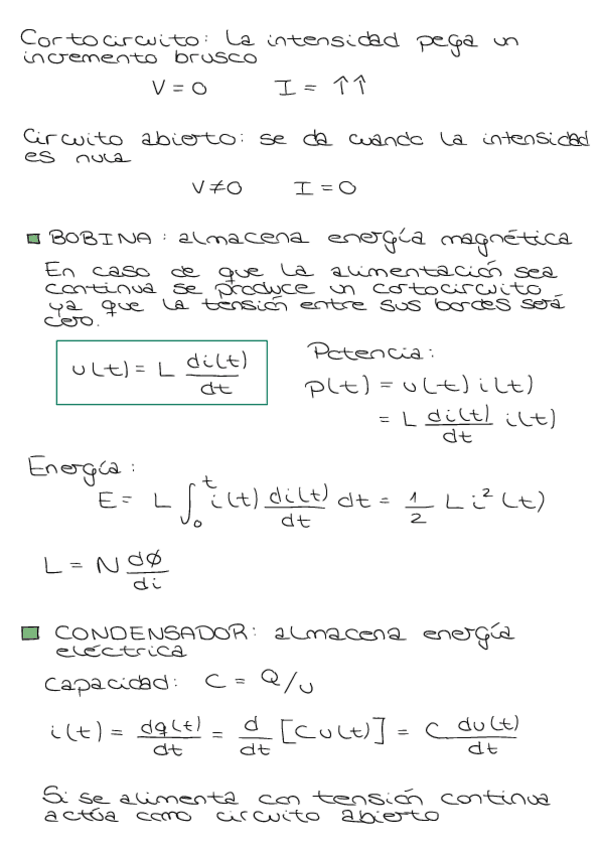 Cortocircuito: La intensidad pega un
incremento brusco
V = 0 I = ↑↑
Circuito abierto: se da cuando la intensidad
es nula
V ≠ 0 I = 0
BOBINA: almacena energía magnética
En caso de que la alimentación sea
continua se produce un cortocircuito
ya que la tensión entre sus bordes será
cero.
u(t) = L di(t)/dt
Potencia:
p(t) = u(t) i(t)
= L di(t)/dt i(t)
Energía:
E = L ∫₀ᵗ i(t) di(t)/dt dt = 1/2 L i²(t)
L = N dø/di
CONDENSADOR: almacena energía
eléctrica
Capacidad: C = Q/u
i(t) = dq(t)/dt = d/dt [Cu(t)] = C du(t)/dt
Si se alimenta con tensión continua
actúa como circuito abierto